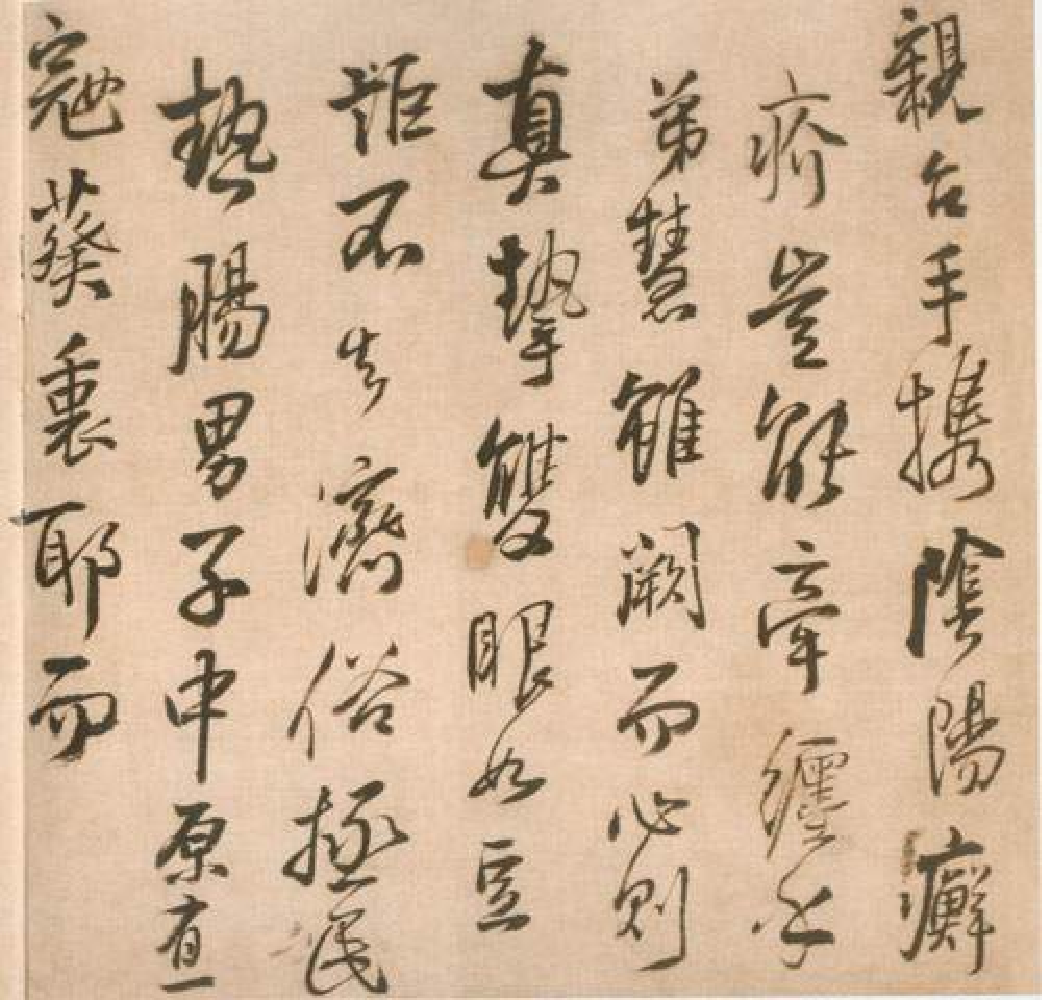 親台手攜陰陽癬
疥豈能牽纏乎
弟慧雖闕而心則
真摯雙眼如豆
詎不失濟俗拯民
熱腸男子中原有一
寇葵裏耶而